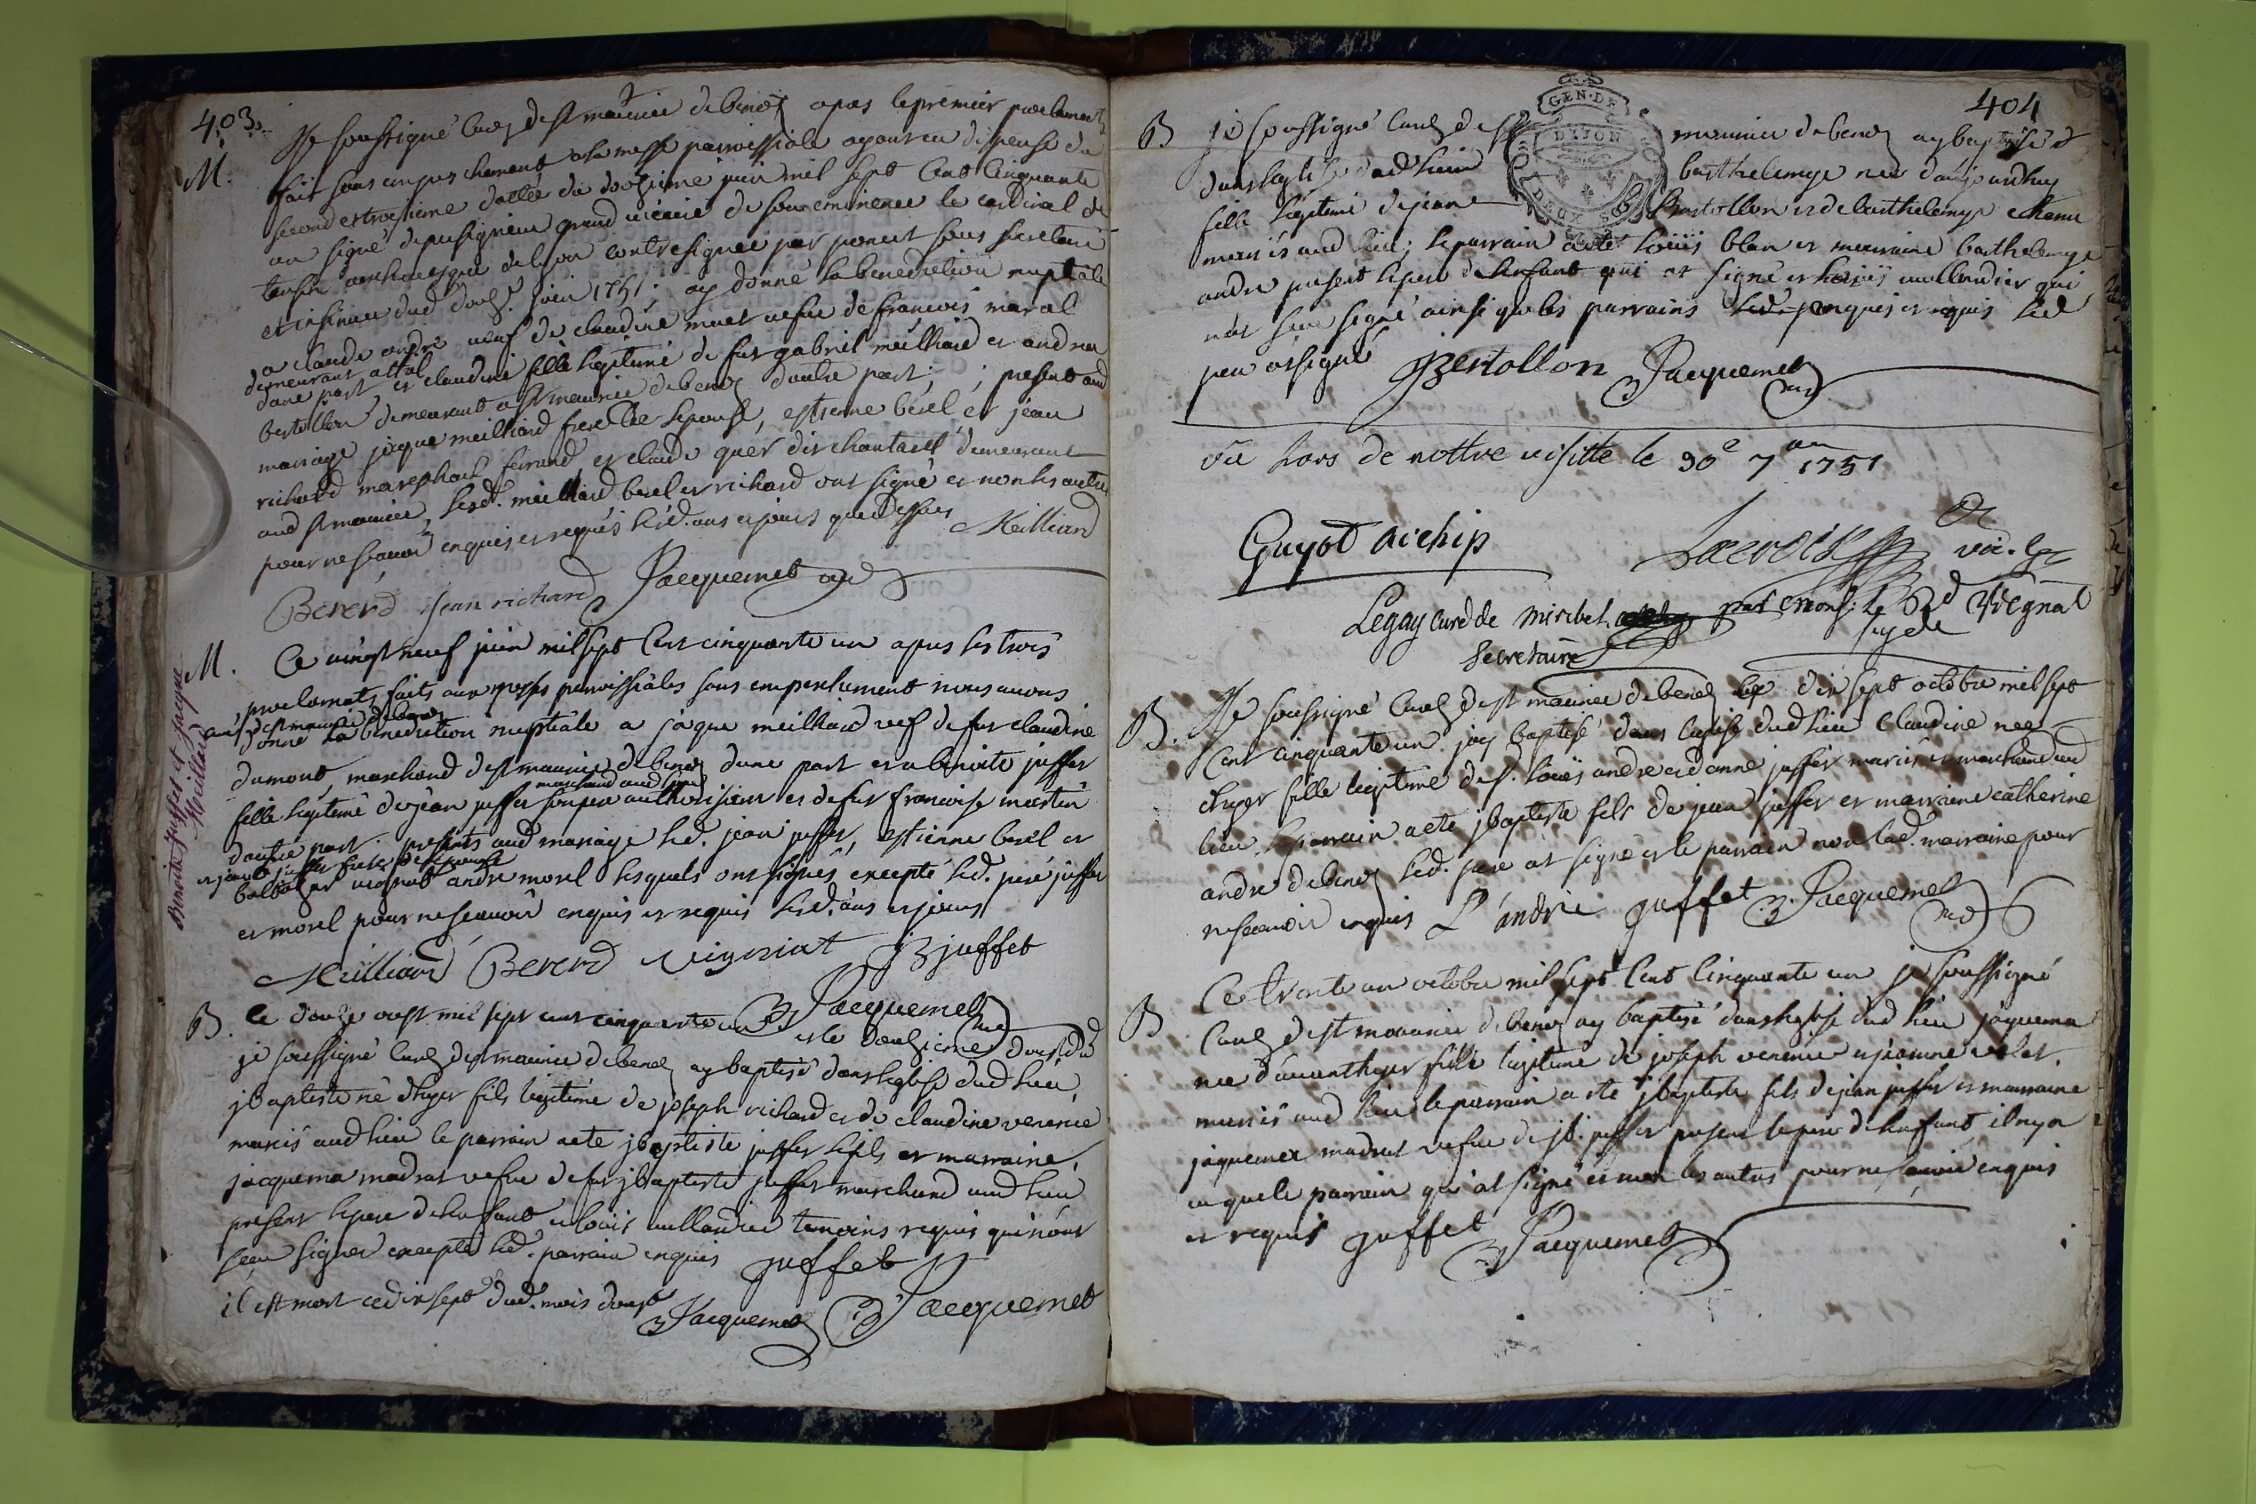 403
M.
Je soussigné curé de st maurice de benoz apres le premier proclamat
fait sans empeschement a la messe parroissiale ayant eu dispense du
second et troisieme dattée du douzieme juin mil sept cent cinquante
un signé de monseigneur grand vicaire de son eminence le cardinal de
tensin archevesque de lyon contresignée par ponert sous secretaire
et insinuée dud douze juin 1751; ay donné la benediction nuptiale
a claude andre veuf de claudine muet vefue de francois maral
demeurant
dune part et claudine fille legitime de fut gabriel meilliard et andrea
bertollon demeurant a st maurice de benoz dautre part; presents aud
mariage jaque meilliard frere de lepouse, estienne berel et jean
richard mareschal ferrand et claude quer dit chantarel demeurant
aud st maurice, lesd. meilliard berel et richard ont signé et non les autres
pour ne scavoir enquis et requis lesd. ans et jours que dessus Meilliard
Bererd jean richard Jacquemet curé
M.
Ce vingt neuf juin mil sept cent cinquante un apres les trois
proclamats faits aux messes parroissiales sans empeschement nous avons
curé de st maurice de benoz
donné la benediction nuptiale a jaque meilliard vef de fut claudine
dumont, marchand de st maurice de benoz dune part et a benoite juffet
marchand aud lieu
fille legitime de jean juffet son pere authorisant et de fut francoise martin
dautre part presents aud mariage led. jean juffet, estienne berel et
et jean b juffet frere de lepouse
baltazar vignat andre morel lesquels ont signés excepté led. pere juffet
et morel pour ne scavoir enquis et requis lesd. ans et jours
Meilliard Bererd vigniat JB juffet
Jacquemet curé
Benoite Juffet et Jacque Meilliard
B.
Ce douze aoust mil sept cent cinquante un et le douzieme daoust
je soussigné curé de st maurice de benoz ay baptisé dans leglise dud lieu
jbaptiste né dhyer fils legitime de joseph richard et de claudine verenne
mariés aud lieu le parrain a ete jbaptiste juffet le fils et marraine
jacquema madras vefue de fut jbaptiste juffet marchand aud lieu
present le pere de lenfant et louis mellandier temoins requis qui nont
sceu signer excepté led. parrain enquis juffet
Jacquemet
il est mort ce dix sept dud. mois daoust Jacquemet
404
B
je soussigné curé de st maurice de benoz ay baptisé
dans leglise dud lieu barthelemye née daujourdhuy
fille legitime de jean Bertollon et de barthelemye
mariés aud lieu; le parrain a eté loüis blan et marraine barthelemye
andre present le pere de lenfant qui at signé et loüis mellandier qui
nat sceu signé ainsi que les parrains enquis et requis led
pere at signé JBertollon Jacquemet curé
GEN. DE DIJON
DEUX S
vû lors de nottre visitte le 30e 7bre 1751
Guyot archip
Legay curé de miribel
Secretaire
B.
Je soussigné curé de st maurice de benoz ce dix sept octobre mil sept
cent cinquante un jay baptisé dans leglise dud lieu Claudine née
dhyer fille legitime de s. louis andre et danne juffet mariés et marchand aud
lieu le parrain a ete jbaptiste fils de jean juffet et marraine catherine
andre de benoz led. pere at signé et le parrain non lad. marraine pour
ne scavoir enquis L andré juffet Jacquemet curé
B
Ce trente un octobre mil sept cent cinquante un je soussigné
curé de st maurice de benoz ay baptisé dans leglise dud lieu jaquema
née davanthyer fille legitime de joseph verenne et jeanne velat
mariés aud lieu le parrain a eté jbaptiste fils de jean juffet et marraine
jaquemea madrat vefue de jb. juffet present le pere de lenfant, il ny a
eu que le parrain qui at signé et non les autres pour ne scavoir enquis
et requis juffet Jacquemet